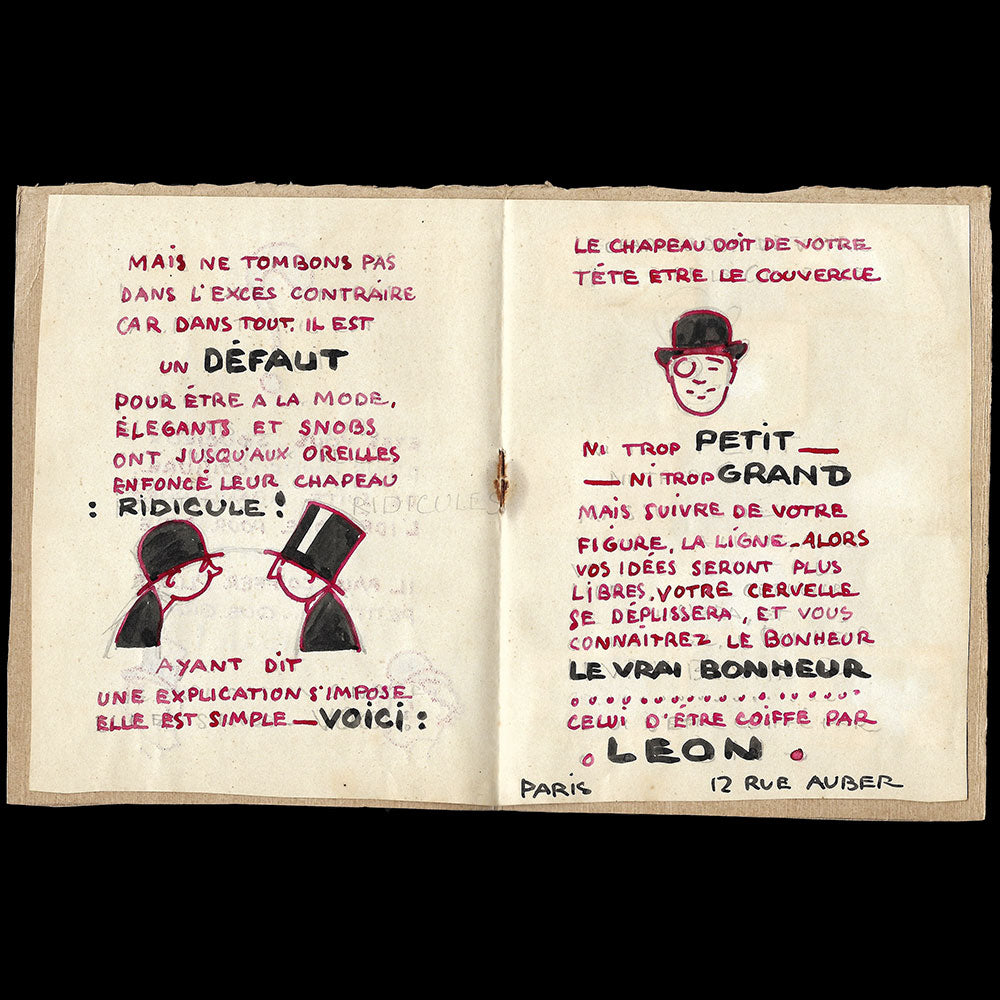 MAIS NE TOMBONS PAS
DANS L'EXCÈS CONTRAIRE
CAR DANS TOUT. IL EST
UN DÉFAUT
POUR ÊTRE A LA MODE,
ÉLEGANTS ET SNOBS
ONT JUSQU'AUX OREILLES
ENFONCÉ LEUR CHAPEAU
: RIDICULE !
RIDICULES
AYANT DIT
UNE EXPLICATION S'IMPOSE
ELLE EST SIMPLE — VOICI :
LE CHAPEAU DOIT DE VOTRE
TÊTE ETRE LE COUVERCLE
NI TROP PETIT —
— NI TROP GRAND
MAIS SUIVRE DE VOTRE
FIGURE, LA LIGNE. ALORS
VOS IDÉES SERONT PLUS
LIBRES, VOTRE CERVELLE
SE DÉPLISSERA, ET VOUS
CONNAITREZ LE BONHEUR
LE VRAI BONHEUR
CELUI D'ÊTRE COIFFÉ PAR
. LEON .
PARIS 12 RUE AUBER